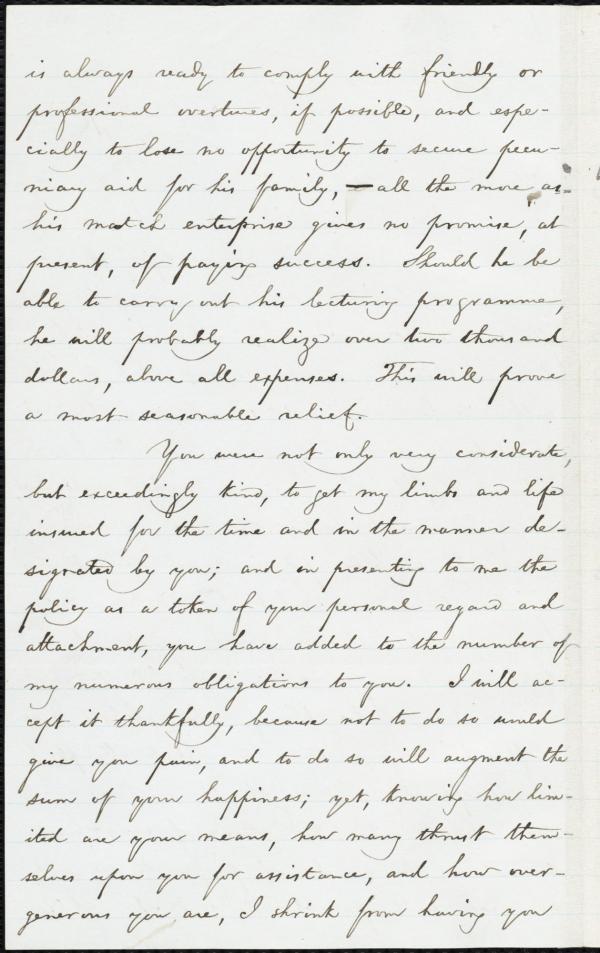 is always ready to comply with friendly or
professional overtures, if possible, and espe-
cially to lose no opportunity to secure pecu-
niary aid for his family, — all the more, as
his match enterprise gives no promise, at
present, of paying success. Should he be
able to carry out his lecturing programme,
he will probably realize over two thousand
dollars, above all expenses. This will prove
a most seasonable relief.
You were not only very considerate,
but exceedingly kind, to get my limbs and life
insured for the time and in the manner de-
signated by you; and in presenting to me the
policy as a token of your personal regard and
attachment, you have added to the number of
my numerous obligations to you. I will ac-
cept it thankfully, because not to do so would
give you pain, and to do so will augment the
sum of your happiness; yet, knowing how lim-
ited are your means, how many thrust them-
selves upon you for assistance, and how over-
generous you are, I shrink from having you